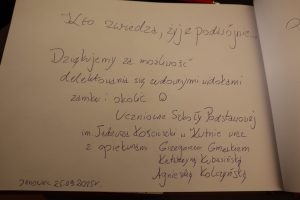 Kto zwiedza, żyje podwójnie...
Dziękujemy za możliwość
delektowania się cudownymi widokami
zamku i okolic ☺
Uczniowie Szkoły Podstawowej
im Tadeusza Kościuszki w Kutnie wraz
z opiekunami Grzegorzem
Katarzyną
Agnieszką
Janowiec 25.09.2015r.